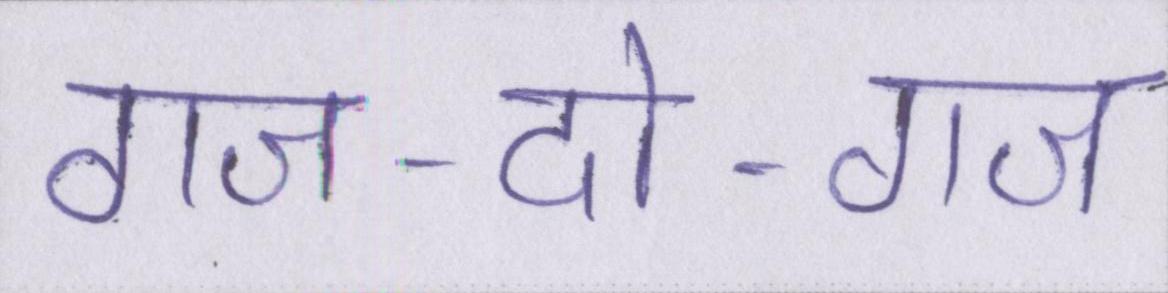 गज-दो-गज